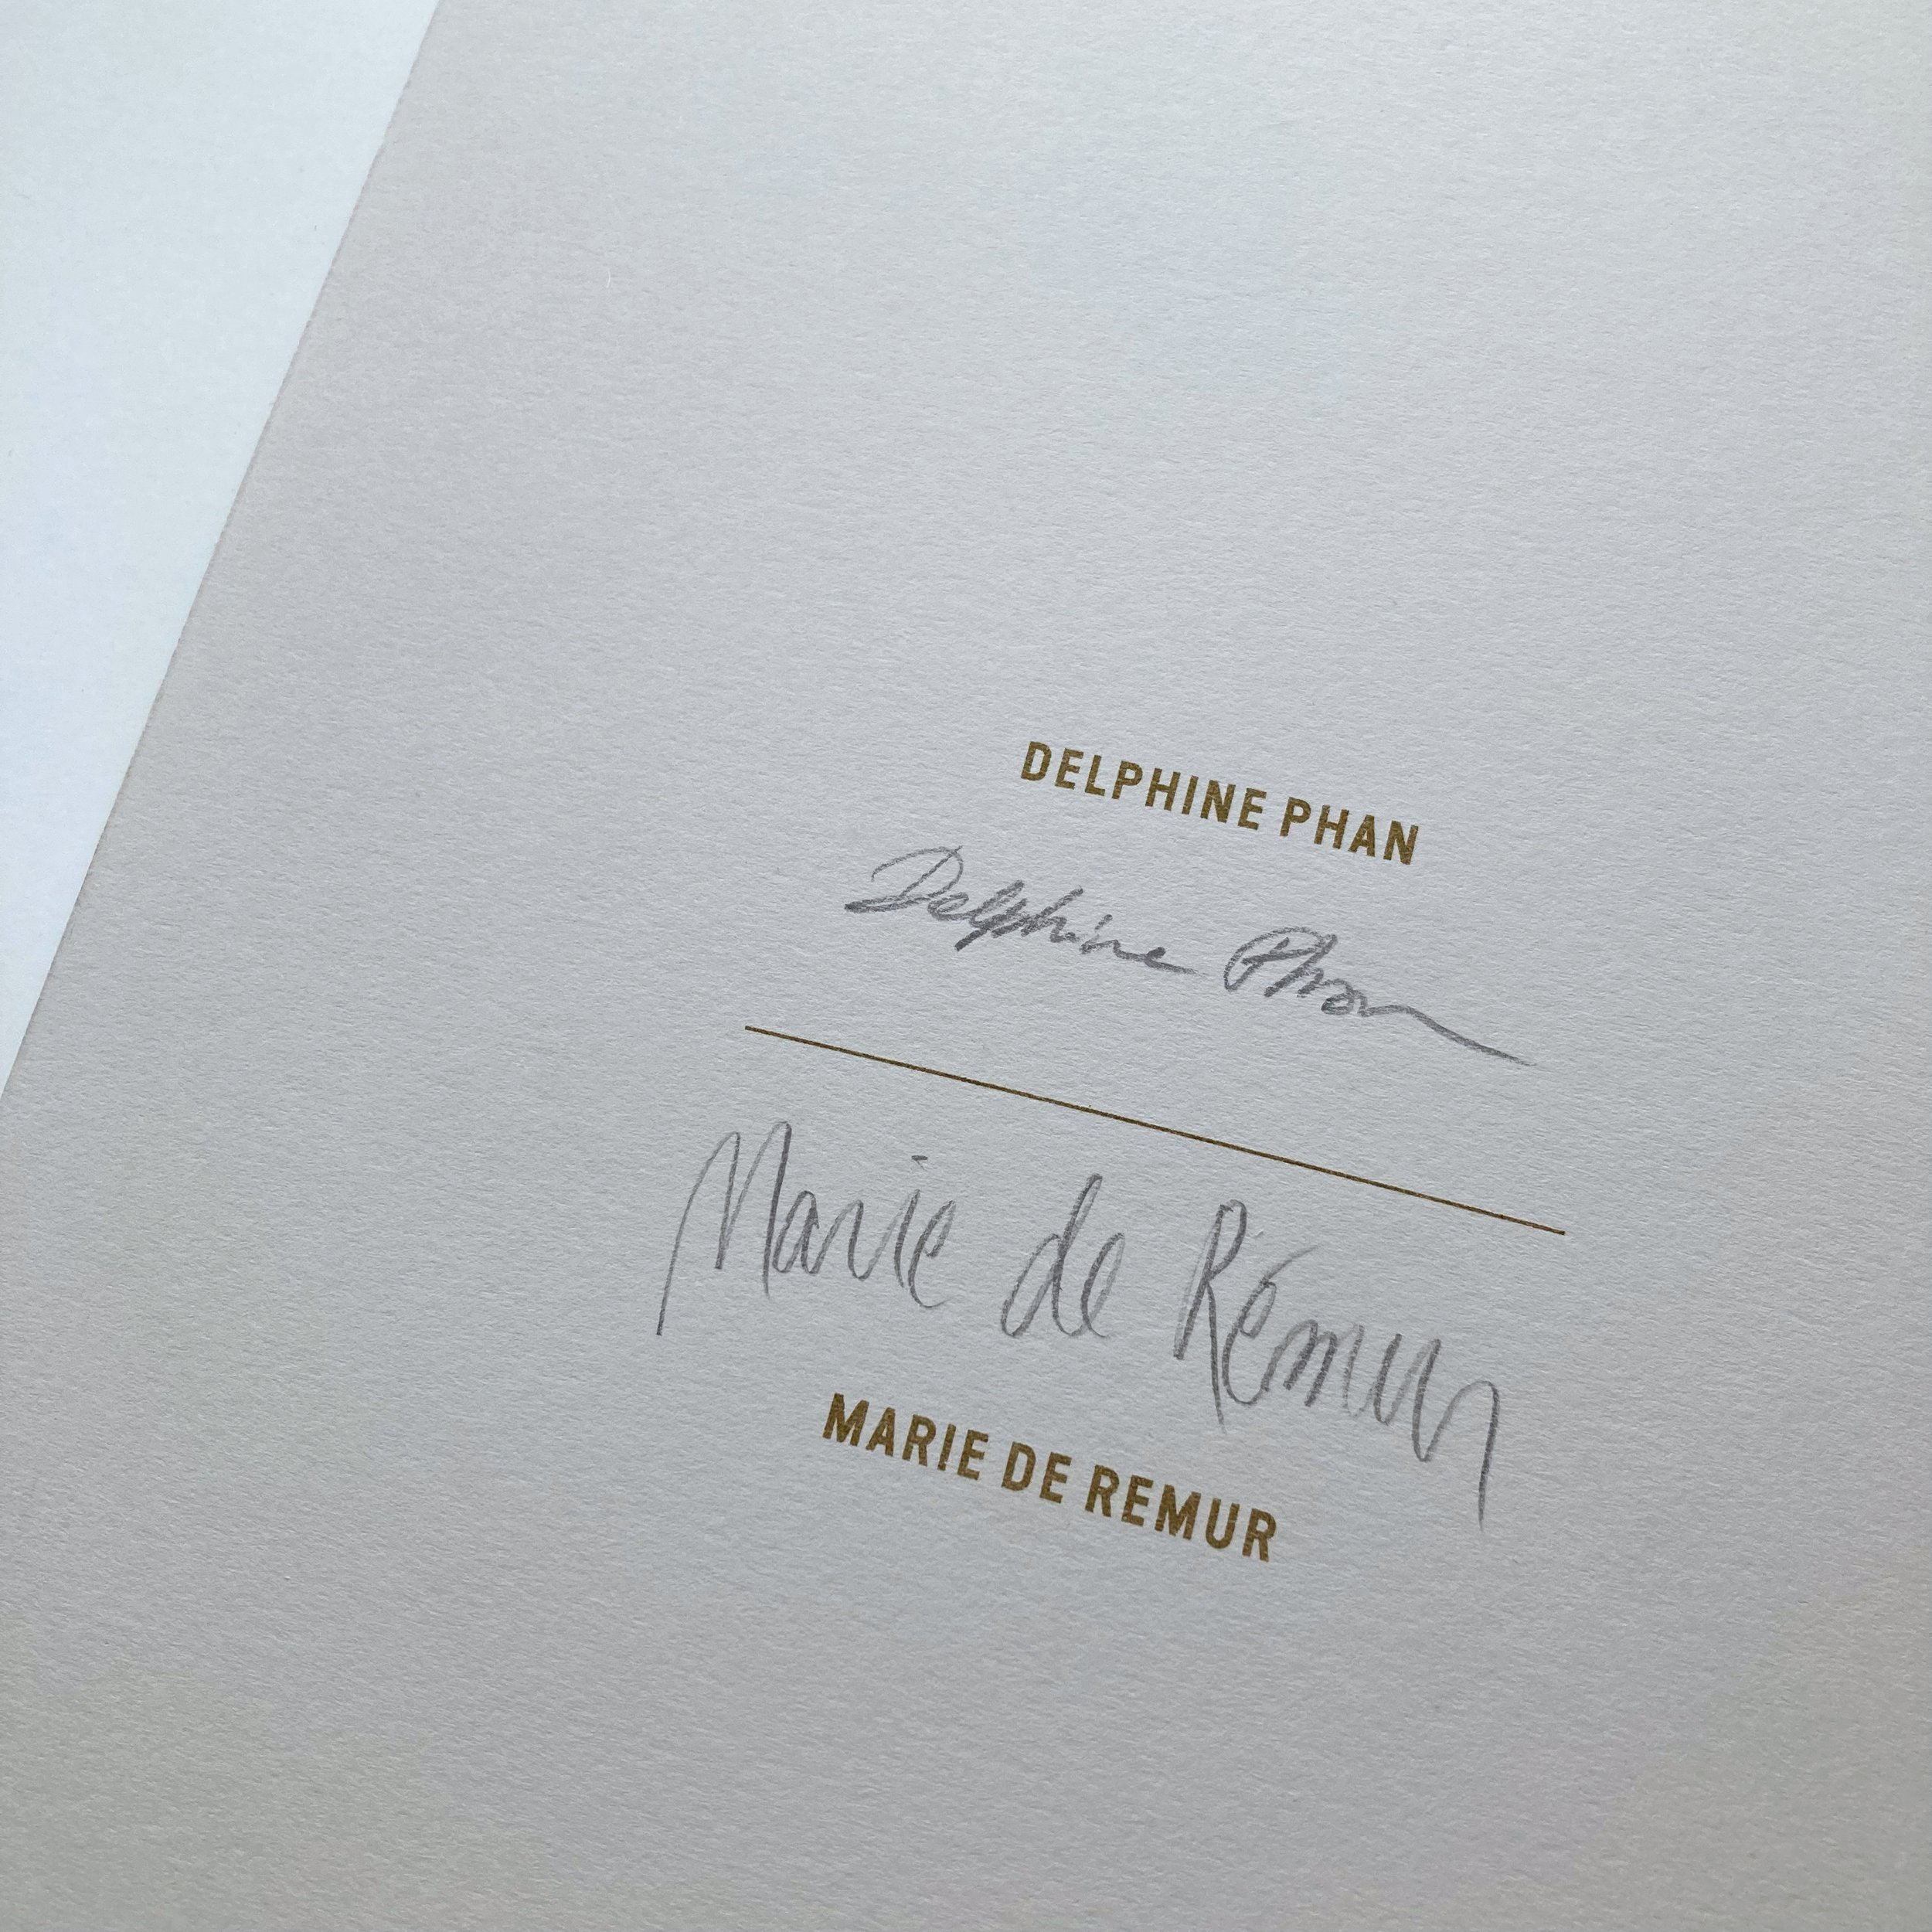 DELPHINE PHAN
Delphine Phan
Marie de Rémur
MARIE DE REMUR